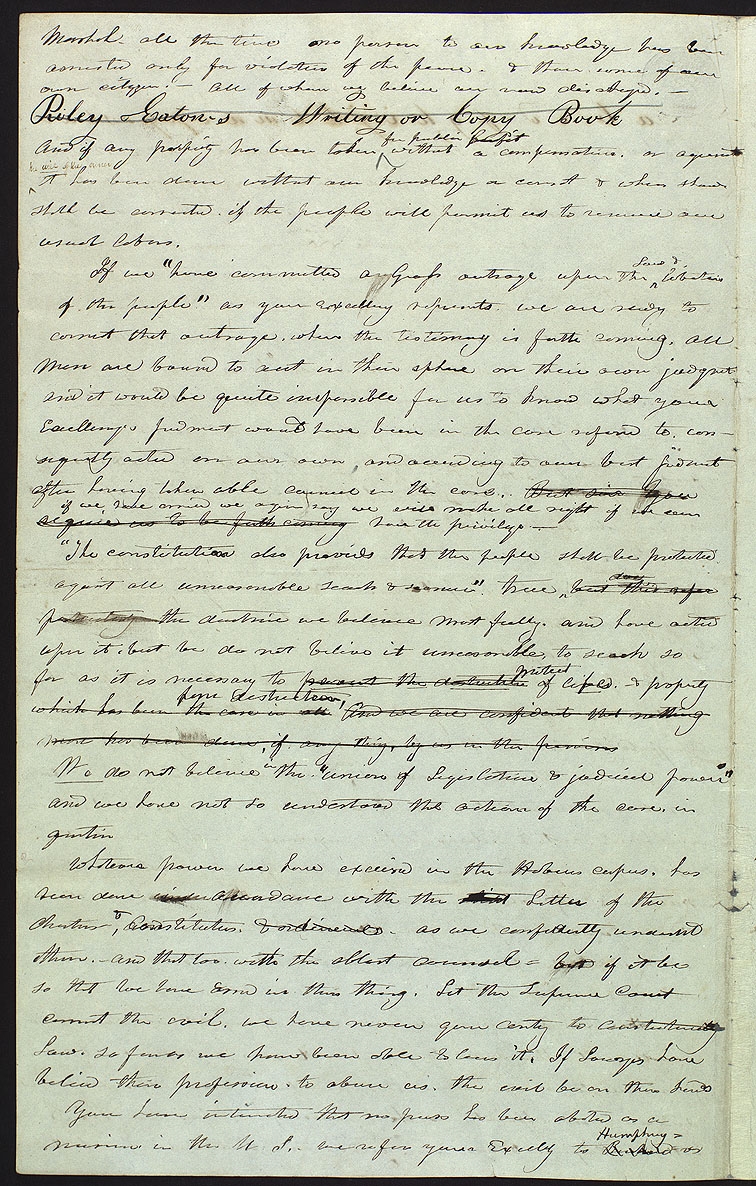 Marshal. all the time no person to our knowledge has been
arrested only for violation of the peace. & those some of our
own citizens. - all of whom we believe are now discharged. -
Riley Eaton,s Writing or Copy Book
And if any property has been taken for public benifit without a compensation. or against
the will of the owner
it has been done without our knowledge or consent & when shown
shall be corrected. if the people will permit us to resume our
usual labors.
If we "have committed a Gross outrage upon the Laws & Liberties
of the people" as your Excellency represents. we are ready to
correct that outrage. when the testimony is forth coming. All
men are bound to act in their sphere on their own judgment
and it would be quite impossible for us to know what your
Excellency's judment would have been in the case refered to. con-
sequently acted on our own and according to our best judment
after having taken able council in the case. But since you
if we have erred we again say we will make all right if we can
require us to be forth coming have the privilege -
"The constitution also provides that the people shall be protected
against all unreasonable search & " True, but this
the doctrine we believe most fully. and have acted
upon it. but we do not believe it unreasonable, to search so
far as it is necessary to prevent the destruction protect of life. & property
from destruction,
which has been the case in all And we are confident that nothing
more has been done, if any thing, by us in the
We do not believe in the "union of Legislative & judicial power"
and we have not so understood the action of the case. in
question
Whatever power we have exceised in the Habeus corpus. has
been done in accordance with the Letter of the
charter, & Constitution. - as we confidently understood
them. - and that too. with the ablest counsel = but if it be
so that we have erred in this thing. Let the Supreme Court
correct the evil. we have never gone contry to constitutionaly
Law. so far as we have been able to learn it. If Lawyers have
belied their profession. to abuse us. the evil be on their heads
You have intimated that no press has been abated as a
nuisince in the U. S. - we refer your Excelly to Humphrey =